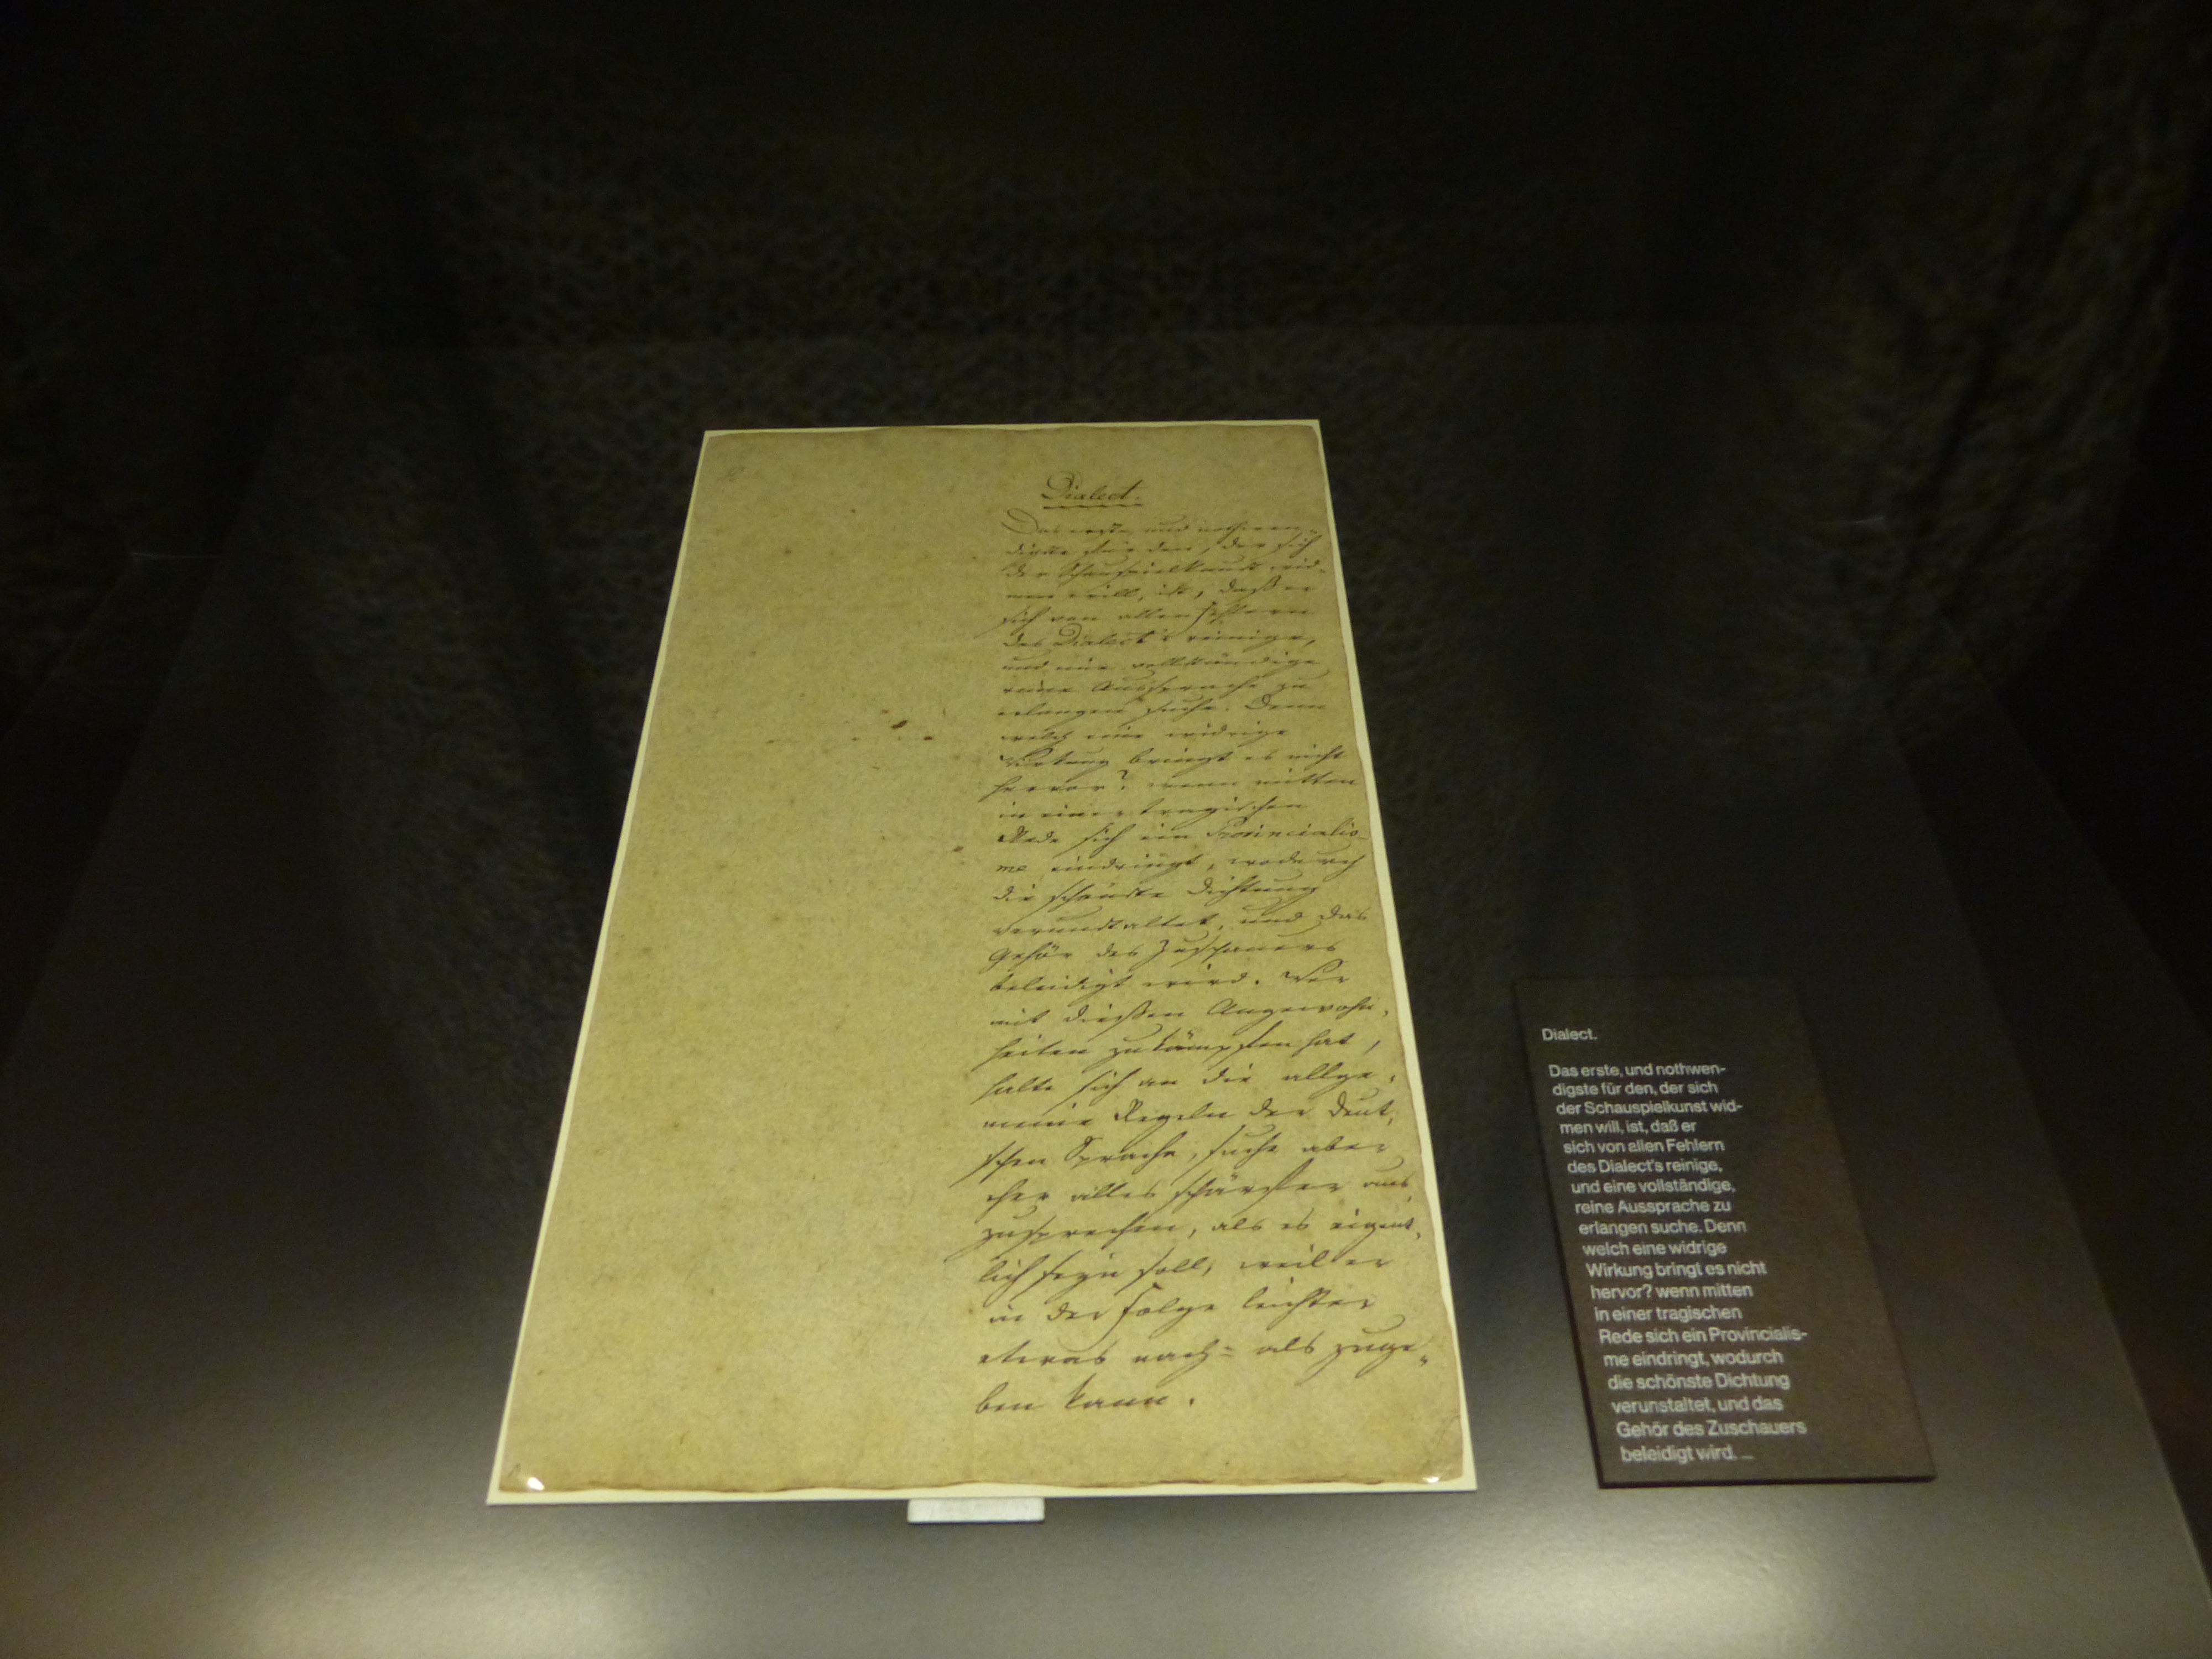 Dialect.
Das erste, und nothwen-
digste für den, der sich
der Schauspielkunst wid-
men will, ist, daß er
sich von allen Fehlern
des Dialect's reinige,
und eine vollständige
reine Aussprache zu
erlangen suche. Denn
welch eine widrige
Wirkung bringt es nicht
hervor? wenn mitten
in einer tragischen
Rede sich ein Provincialis-
me eindringt, wodurch
die schönste Dichtung
verunstaltet, und das
Gehör des Zuschauers
beleidigt wird. Wer
mit dießen Angewohn-
heiten zu kämpfen hat,
halte sich an die allge-
meine Regeln der deut-
schen Sprache, suche aber
eher alles schärfer aus
zusprechen, als es eigent-
lich seyn soll, weil er
in der Folge leichter
etwas nach= als zuge-
ben kann.
Dialect.
Das erste, und nothwen-
digste für den, der sich
der Schauspielkunst wid-
men will, ist, daß er
sich von allen Fehlern
des Dialect's reinige,
und eine vollständige,
reine Aussprache zu
erlangen suche. Denn
welch eine widrige
Wirkung bringt es nicht
hervor? wenn mitten
in einer tragischen
Rede sich ein Provincialis-
me eindringt, wodurch
die schönste Dichtung
verunstaltet, und das
Gehör des Zuschauers
beleidigt wird. ...